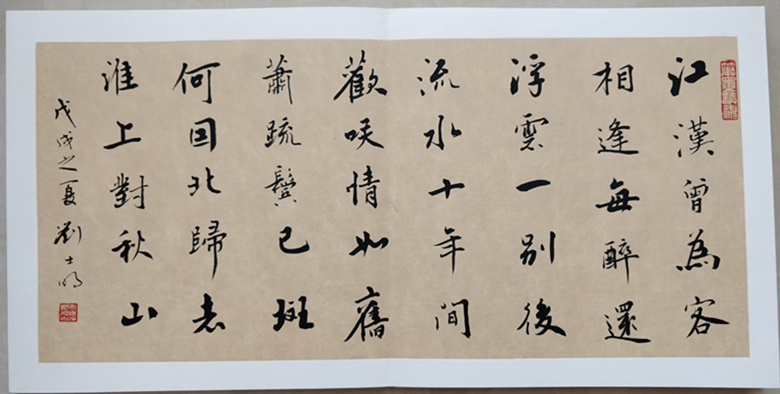 江漢曾為客
相逢每醉還
浮雲一别後
流水十年間
歡咲情如舊
蕭疏鬢已斑
何因北歸去
淮上對秋山
戊戌之夏劉士明